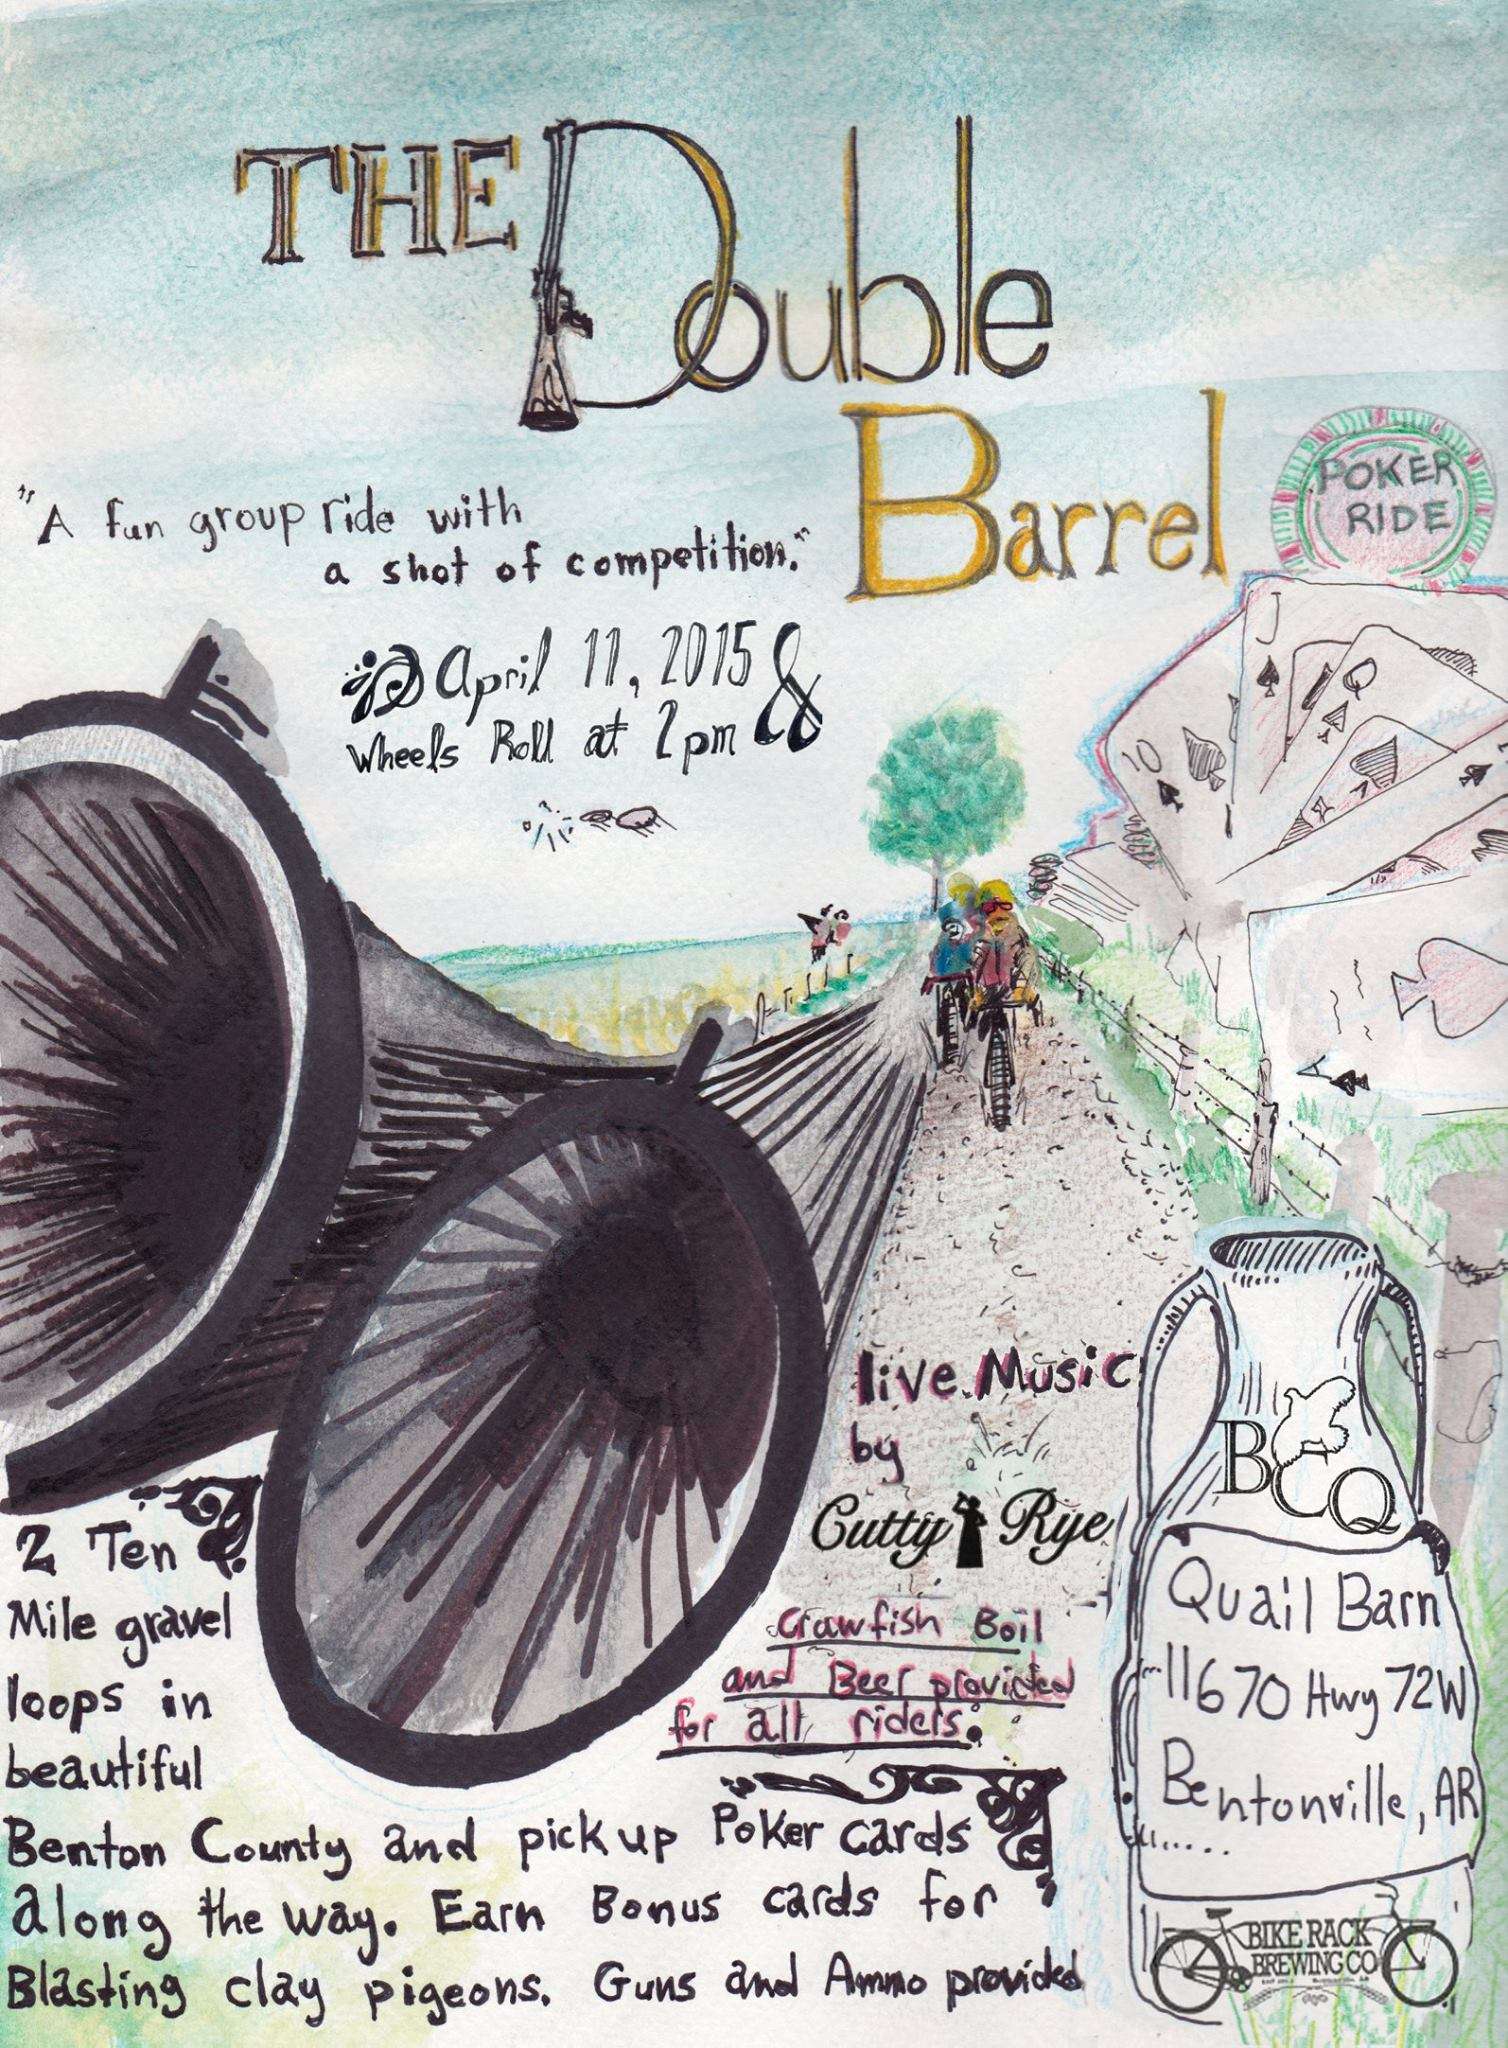 THE Double
Barrel
POKER
RIDE
"A fun group ride with
a shot of competition."
April 11, 2015
Wheels Roll at 2pm
&
J
Q
10
A
live Music
by
Cutty Rye
Crawfish Boil
and Beer provided
for all riders.
2 Ten
Mile gravel
loops in
beautiful
Benton County and pick up Poker cards
along the way. Earn Bonus cards for
Blasting clay pigeons. Guns and Ammo provided
BCQ
Quail Barn
11670 Hwy 72W
Bentonville, AR
BIKE RACK
BREWING CO